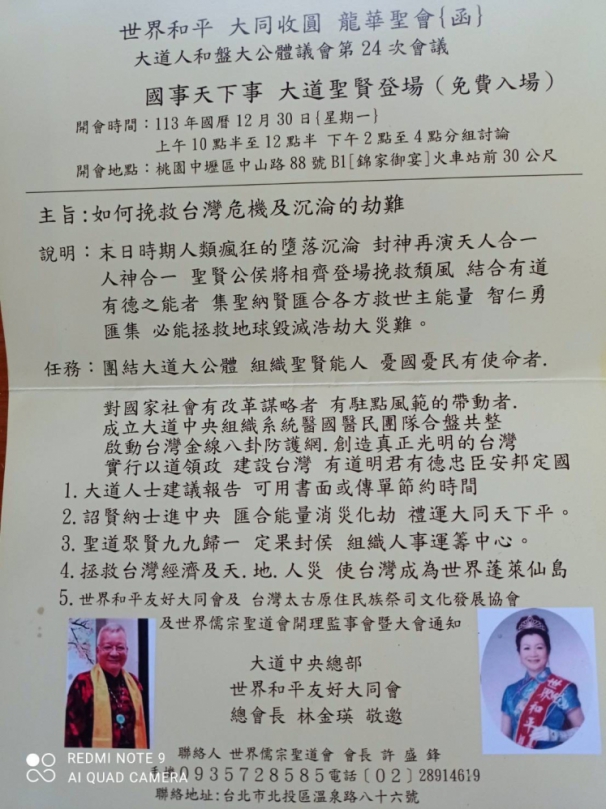 世界和平 大同收圓 龍華聖會{函}
大道人和盤大公體議會第24次會議
國事天下事 大道聖賢登場（免費入場）
開會時間：113年國曆12月30日{星期一}
上午10點半至12點半 下午2點至4點分組討論
開會地點：桃園中壢區中山路88號B1[錦家御宴]火車站前30公尺
主旨:如何挽救台灣危機及沉淪的劫難
說明：末日時期人類瘋狂的墮落沉淪 封神再演天人合一
人神合一 聖賢公侯將相齊登場挽救頹風 結合有道
有德之能者 集聖納賢匯合各方救世主能量 智仁勇
匯集 必能拯救地球毀滅浩劫大災難。
任務：團結大道大公體 組織聖賢能人 憂國憂民有使命者.
對國家社會有改革謀略者 有駐點風範的帶動者.
成立大道中央組織系統醫國醫民團隊合盤共整
啟動台灣金線八卦防護網.創造真正光明的台灣
實行以道領政 建設台灣 有道明君有德忠臣安邦定國
1.大道人士建議報告 可用書面或傳單節約時間
2.詔賢納士進中央 匯合能量消災化劫 禮運大同天下平。
3.聖道聚賢九九歸一 定果封侯 組織人事運籌中心。
4.拯救台灣經濟及天.地.人災 使台灣成為世界蓬萊仙島
5.世界和平友好大同會及 台灣太古原住民族祭司文化發展協會
及世界儒宗聖道會開理監事會暨大會通知
大道中央總部
世界和平友好大同會
總會長 林金瑛 敬邀
世界和平
聯絡人 世界儒宗聖道會 會長 許盛鋒
0935728585電話〔02〕28914619
聯絡地址:台北市北投區溫泉路八十六號
REDMI NOTE 9
AI QUAD CAMERA